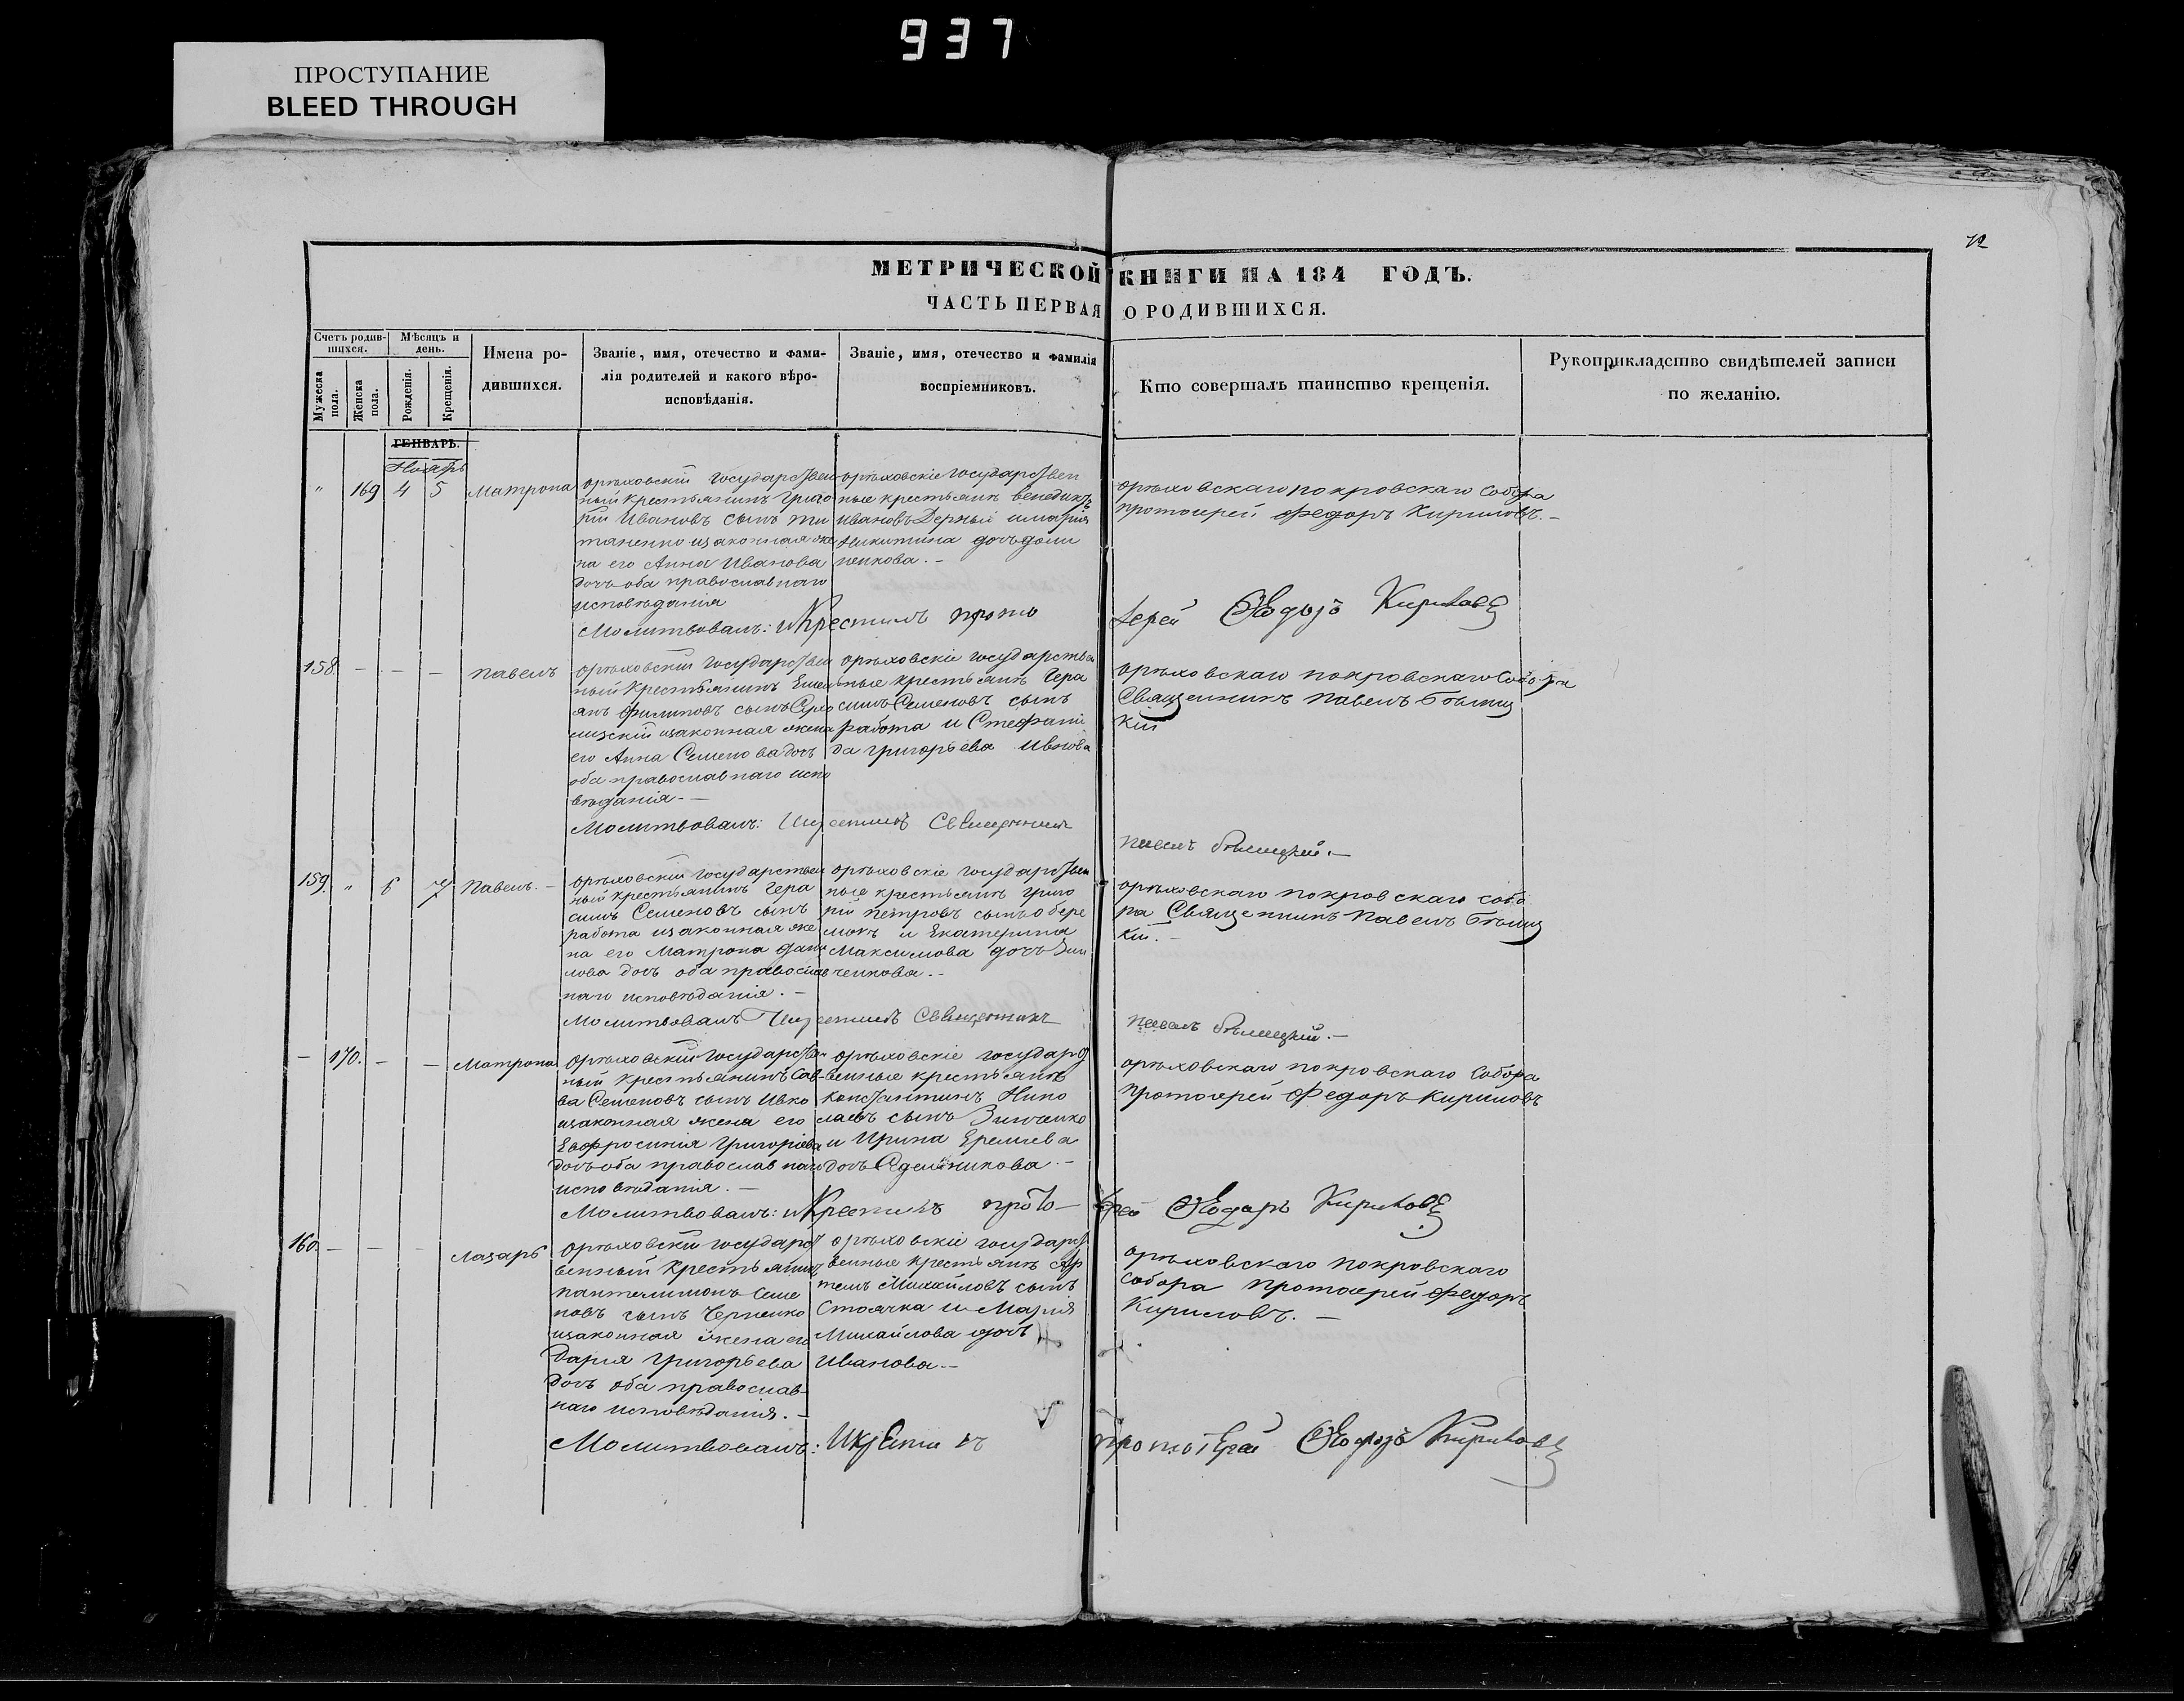 937
ПРОСТУПАНИЕ
BLEED THROUGH
72
МЕТРИЧЕСКОЙ КНИГИ НА 184 ГОДЪ.
ЧАСТЬ ПЕРВАЯ О РОДИВШИХСЯ.
Счетъ родив-
шихся.
Мѣсяцъ и
день.
Мужеска
пола.
Женска
пола.
Рожденія.
Крещенія.
Имена ро-
дившихся.
Званіе, имя, отечество и фами-
лія родителей и какого вѣро-
исповѣданія.
Званіе, имя, отечество и фамилія
воспріемниковъ.
Кто совершалъ таинство крещенія.
Рукоприкладство свидѣтелей записи
по желанію.
ГЕНВАРЬ.
Ноябрь
" 169 4 5 Матрона
орѣховскій государствен
ный крестьянинъ Григо
рій Ивановъ сынъ Ти
таненко изаконная же
на его Анна Иванова
дочь оба православнаго
исповѣданія
орѣховскіе государствен
ные крестьяне Венедиктъ
Ивановъ Дерный имарія
Никитина дочь доли
ненкова.-
орѣховскаго покровскаго собора
протоиерей Федоръ Кириловъ.-
Молитвовалъ: иКрестилъ прото
Іерей Феодоръ Кириловъ
158. - - - Павелъ
орѣховскій государствен
ный крестьянинъ Емель
янъ Филиповъ сынъ
изаконная жена
его Анна Семенова дочь
оба православнаго испо
вѣданія.-
орѣховскіе государствен
ные крестьяне Гера
симъ Семеновъ сынъ
работа и Стефани
да григорьева Ивкова
орѣховскаго покровскаго собора
Священникъ Павелъ Бѣлиц
кій
Молитвовалъ: Икрестилъ Священникъ
Павелъ Бѣлицкій.-
159. " 6 7 Павелъ.-
орѣховскій государствен
ный крестьянинъ Гера
симъ Семеновъ сынъ
работа изаконная же
на его Матрона Дани
лова дочь оба православ
наго исповѣданія.-
орѣховскіе государствен
ные крестьяне Григо
рій Петровъ сынъ обере
мокъ и Екатерина
Максимова дочь Зин
ченкова.-
орѣховскаго покровскаго собо
ра Священникъ Павелъ Бѣлиц
кій.-
Молитвовалъ Икрестилъ Священникъ
Павелъ Бѣлицкій.-
- 170. - - Матрона
Орѣховскій государствен
ный крестьянинъ Сав-
ва Семеновъ сынъ Ивко
изаконная жена его
Евфросинія Григоріева
дочь оба православнаго
исповѣданія.-
орѣховскіе государст
венные крестьяне
Константинъ Нико
лаевъ сынъ Зинченко
и Ирина Еремиева
дочь
орѣховскаго покровскаго Собора
протоиерей Федоръ Кириловъ
Молитвовалъ: иКрестилъ прото-
Іерей Феодоръ Кириловъ
160. - - - Лазарь
Орѣховскій государст
венный крестьянинъ
Пантелимонъ Семе
новъ сынъ Черненко
изаконная жена его
Дария Григорьева
дочь оба православ-
наго исповѣданія.-
орѣховскіе государст
венные крестьяне Ар
темъ Михайловъ сынъ
Стоячка и Мария
Михайлова дочь
Иванова.-
орѣховскаго покровскаго
собора протоиерей Федоръ
Кириловъ.-
Молитвовалъ: Икрестилъ
протоіерей Феодоръ Кириловъ